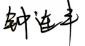 钟连丰